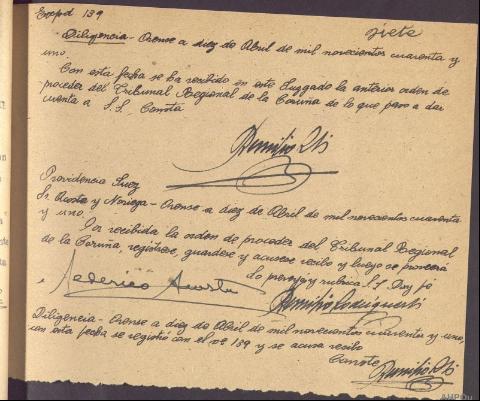 Exped 139
siete
Diligencia - Orense a diez de Abril de mil novecientos cuarenta y
uno.
Con esta fecha se ha recibido en este Juzgado la anterior orden de
proceder del Tribunal Regional de la Coruña de lo que paso a dar
cuenta a S.S. Conste
Providencia Juez
Sr Acosta y Noriega - Orense a diez de Abril de mil novecientos cuarenta
y uno.
Por recibida la orden de proceder del Tribunal Regional
de la Coruña, registrese, guardese y acusese recibo y luego se proveerá
Lo proveyo y rubrica S.S. Doy fé
Federico Acosta
Remigio Rodriguez
Diligencia - Orense a diez de Abril de mil novecientos cuarenta y uno,
con esta fecha se registro con el nº 139 y se acusa recibo
Conste
AHPOu